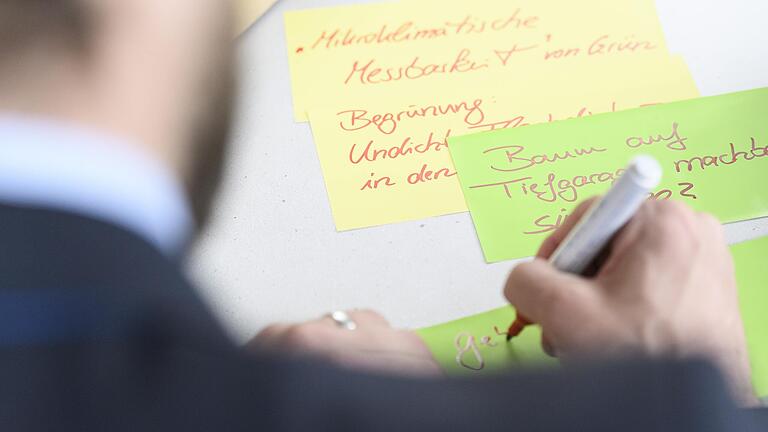 „Mikroklimatische
Messbarkeit" von Grün
Begrünung:
Undicht
in den
Baum auf
Tiefgarage machb
si
ge